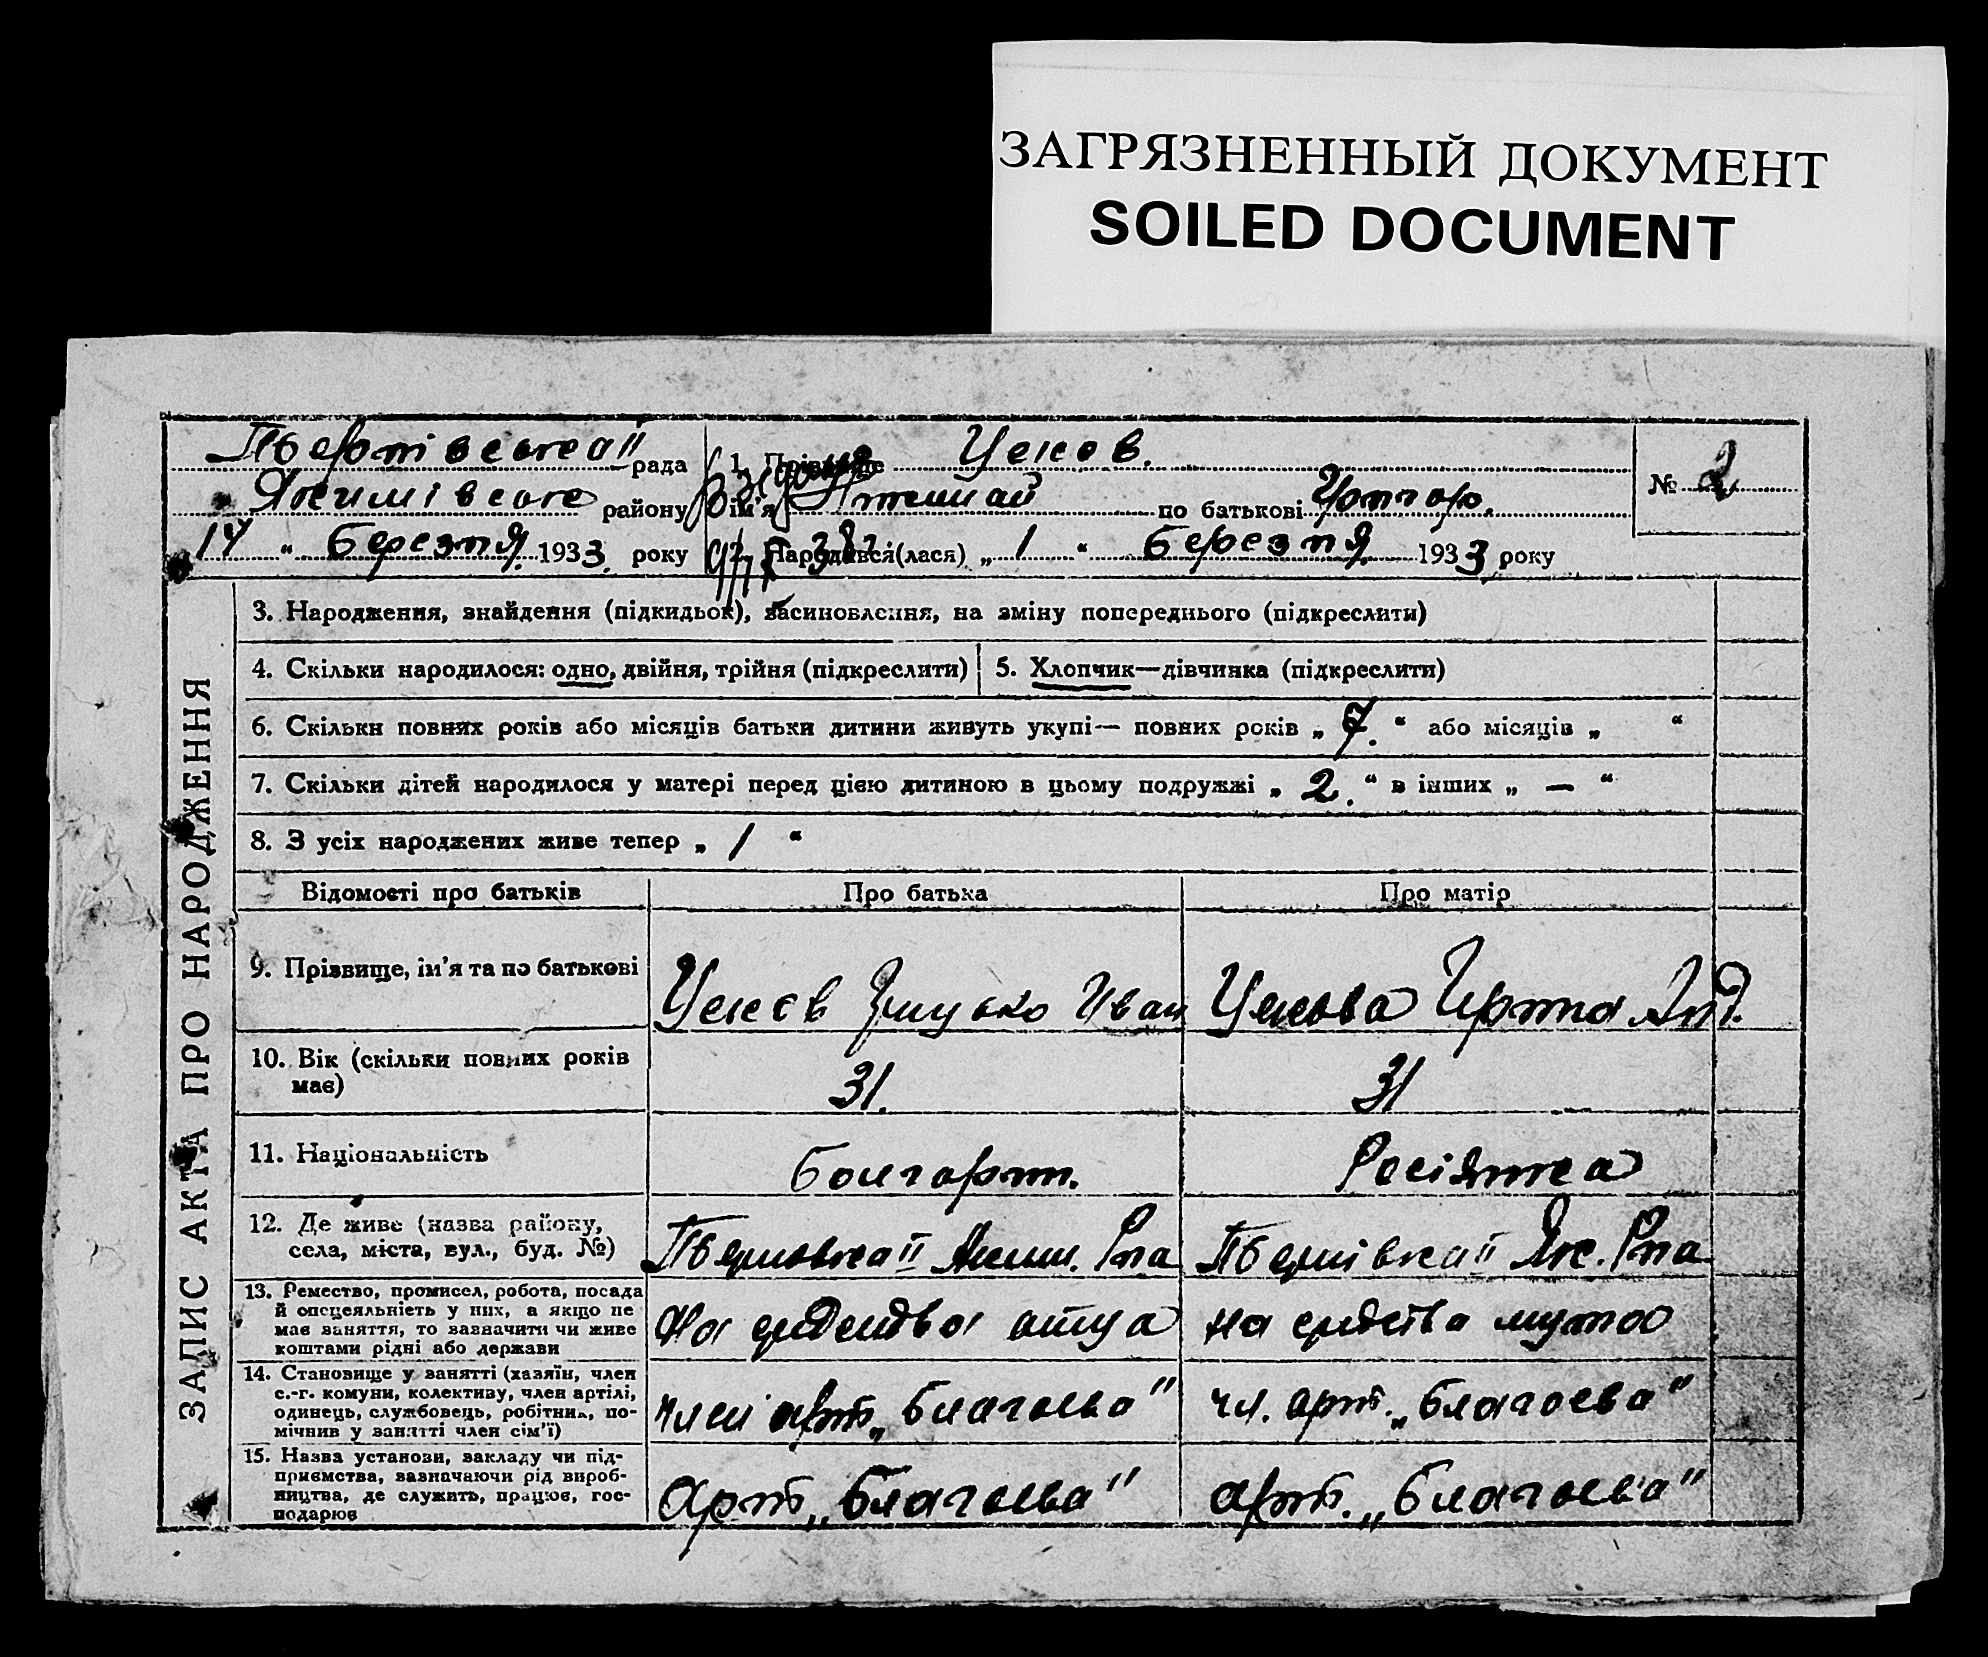 ЗАГРЯЗНЕННЫЙ ДОКУМЕНТ
SOILED DOCUMENT
рада
району
14 " Березня 1933 року
1. Прізвище Цеков.
ім'я по батькові
Народився(лася) „ 1 " Березня 1933 року
№ 2
ЗАПИС АКТА ПРО НАРОДЖЕННЯ
3. Народження, знайдення (підкидьок), засиновлення, на зміну попереднього (підкреслити)
4. Скільки народилося: одно, двійня, трійня (підкреслити)
5. Хлопчик—дівчинка (підкреслити)
6. Скільки повних років або місяців батьки дитини живуть укупі— повних років „ 7. " або місяців „ "
7. Скільки дітей народилося у матері перед цією дитиною в цьому подружжі „ 2. " в інших „ — "
8. З усіх народжених живе тепер „ 1 "
Відомості про батьків
Про батька
Про матір
9. Прізвище, ім'я та по батькові
Цекєв Иван
10. Вік (скільки повних років
має)
31.
31
11. Національність
Болгарин.
Росіянка
12. Де живе (назва району,
села, міста, вул., буд. №)
13. Ремество, промисел, робота, посада
й спеціяльність у них, а якщо не
має заняття, то зазначити чи живе
коштами рідні або держави
На отца
на мужа
14. Становище у занятті (хазяїн, член
с.-г. комуни, колективу, член артілі,
одинець, службовець, робітник, по-
мічник у занятті член сім'ї)
член арт. „Благоева"
чл. арт. „Благоева"
15. Назва установи, закладу чи під-
приємства, зазначаючи рід вироб-
ництва, де служить, працює, гос-
подарює
Арт. „Благоева"
арт. „Благоева"